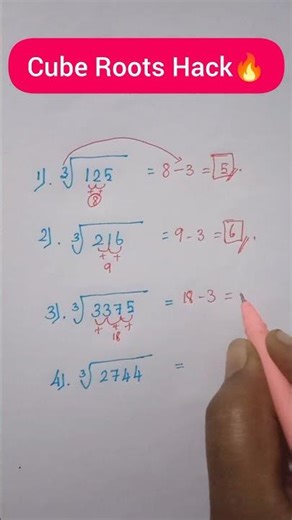 Cube Roots Hack🔥
1). ∛125 = 8-3 = 5.
+ +
8
2). ∛216 = 9-3 = 6.
+ +
9
3). ∛3375 = 18-3 =
+ + +
18
4). ∛2744 =